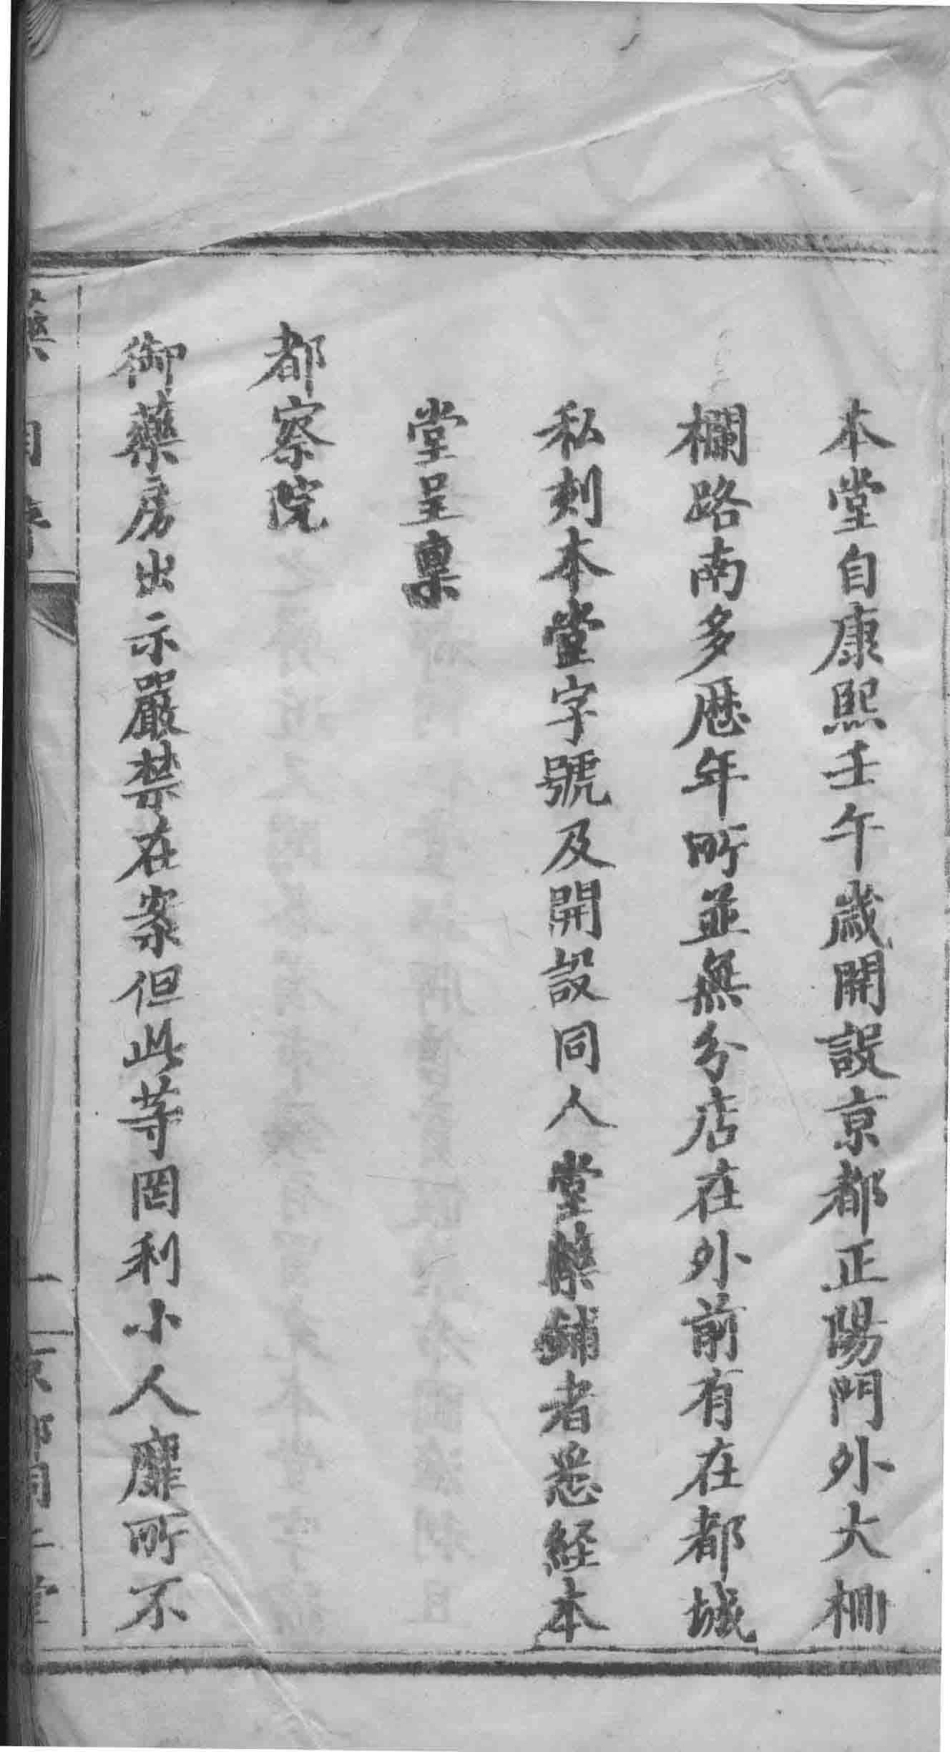 本堂自康熙壬午歲開設京都正陽門外大柵
欄路南多歷年所並無分店在外前有在都城
私刻本堂字號及開設同人堂藥鋪者悉経本
堂呈稟
都察院
御藥房出示嚴禁在案但此等罔利小人靡所不
藥目序
一
京都同仁堂